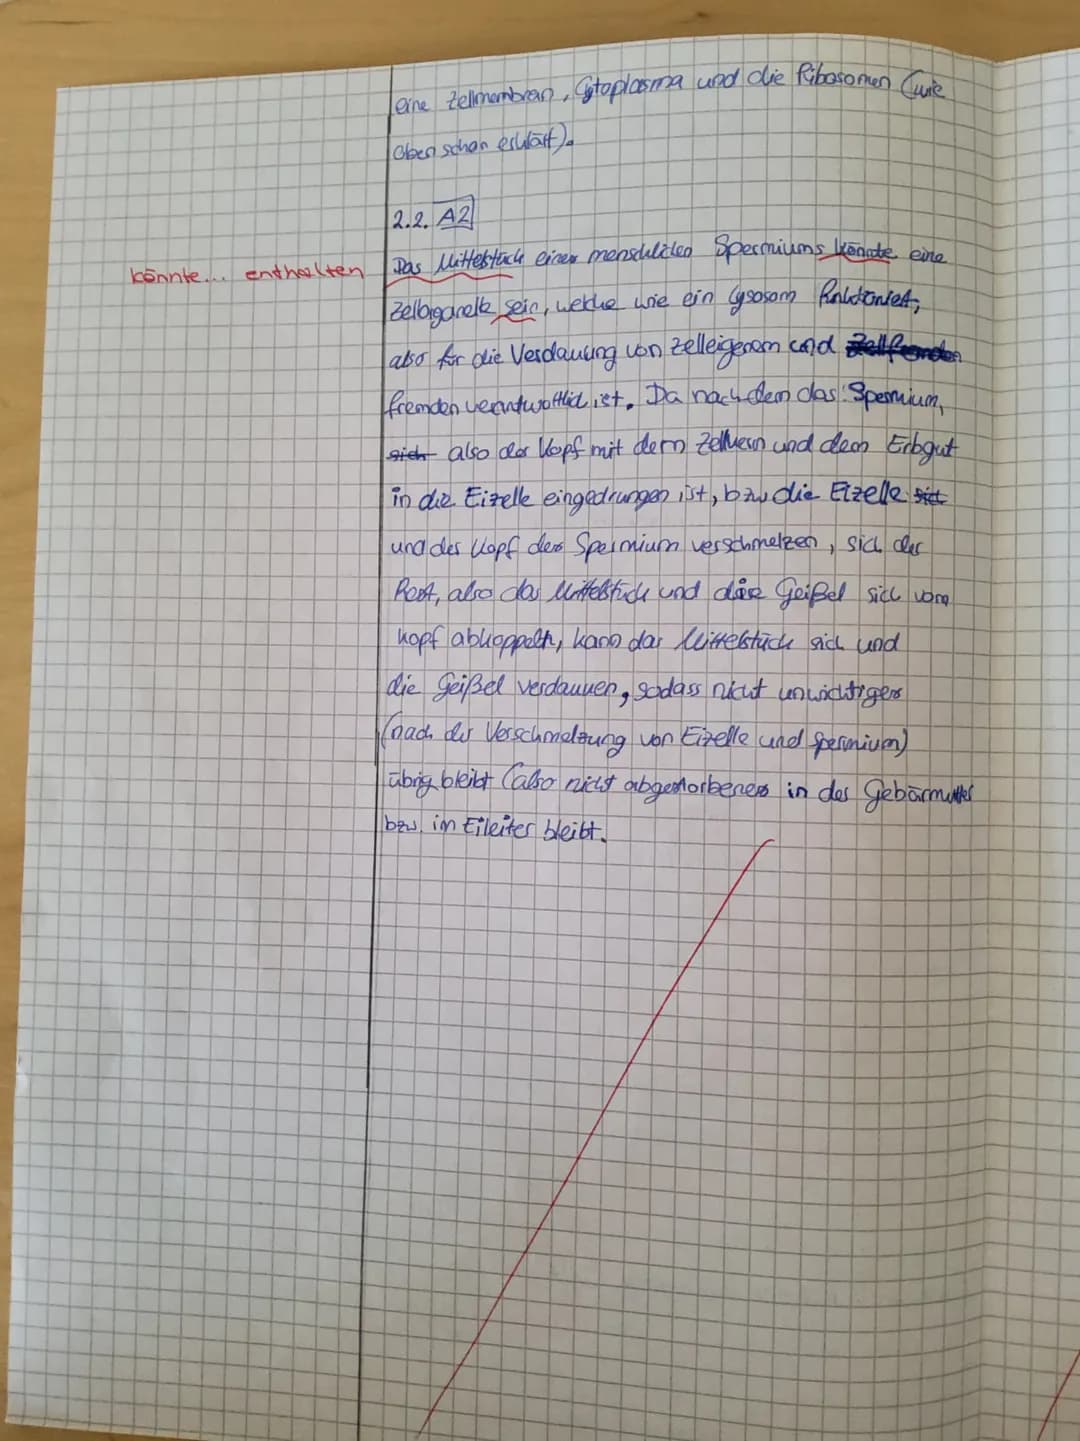 eine Zellmembran, Cytoplasma und die Ribosomen (wie
oben schon erklärt).
2.2. A2
könnte... enthalten
Das Mittelstück eines menschlichen Spermiums könnte eine
Zellorganelle sein, welche wie ein Lysosom funktioniert,
also für die Verdauung von zelleigenem und Zellfremden
fremden verantwortlich ist. Da nachdem das Spermium,
sich also der Kopf mit dem Zellkern und dem Erbgut
in die Eizelle eingedrungen ist, bzw die Eizelle sich
und der Kopf des Spermium verschmelzen, sich der
Rest, also das Mittelstück und die Geißel sich vom
Kopf abkoppeln, kann das Mittelstück sich und
die Geißel verdauuen, sodass nicht unwichtiges
(nach der Verschmelzung von Eizelle und Spermium)
übrig bleibt (also nicht abgestorbenes in der Gebärmutter
bzw. im Eileiter bleibt.